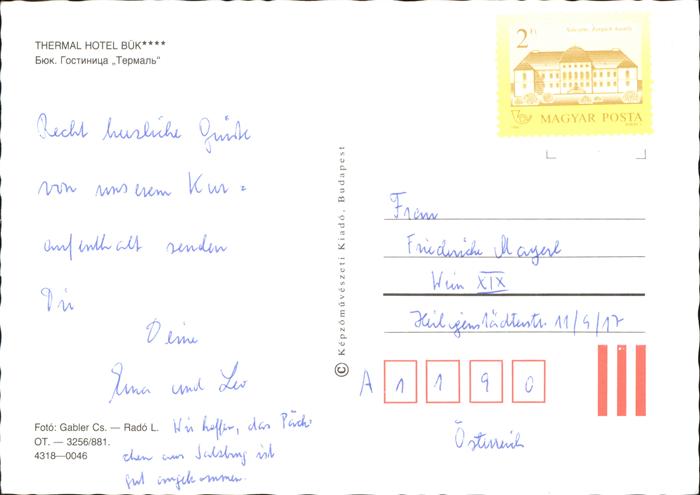 THERMAL HOTEL BÜK****
Бюк. Гостиница „Термаль“
2 Ft
MAGYAR POSTA
Recht herzliche Grüße
von unserem Kur=
aufenthalt senden
Dir
Deine
Erna und Leo
Wir hoffen, das Päck-
chen aus Salzburg ist
gut angekommen.
Foto: Gabler Cs. — Radó L.
OT. — 3256/881.
4318—0046
© Képzőművészeti Kiadó, Budapest
Frau
Friederike Mayerl
Wien XIX
Heiligenstädterstr. 11/9/17
A 1190
Österreich